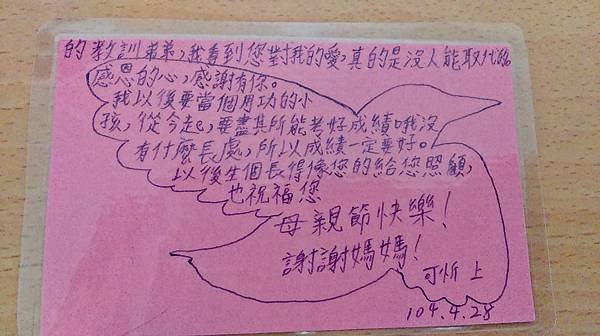 的教訓弟弟,我看到您對我的愛,真的是沒人能取代的
感恩的心,感謝有你。
我以後要當個用功的小
孩,從今起,要盡其所能考好成績哦沒
有什麼長處,所以成績一定要好。
以後生個長得像您的給您照顧,
也祝福您
母親節快樂!
謝謝媽媽!
可忻 上
104.4.28